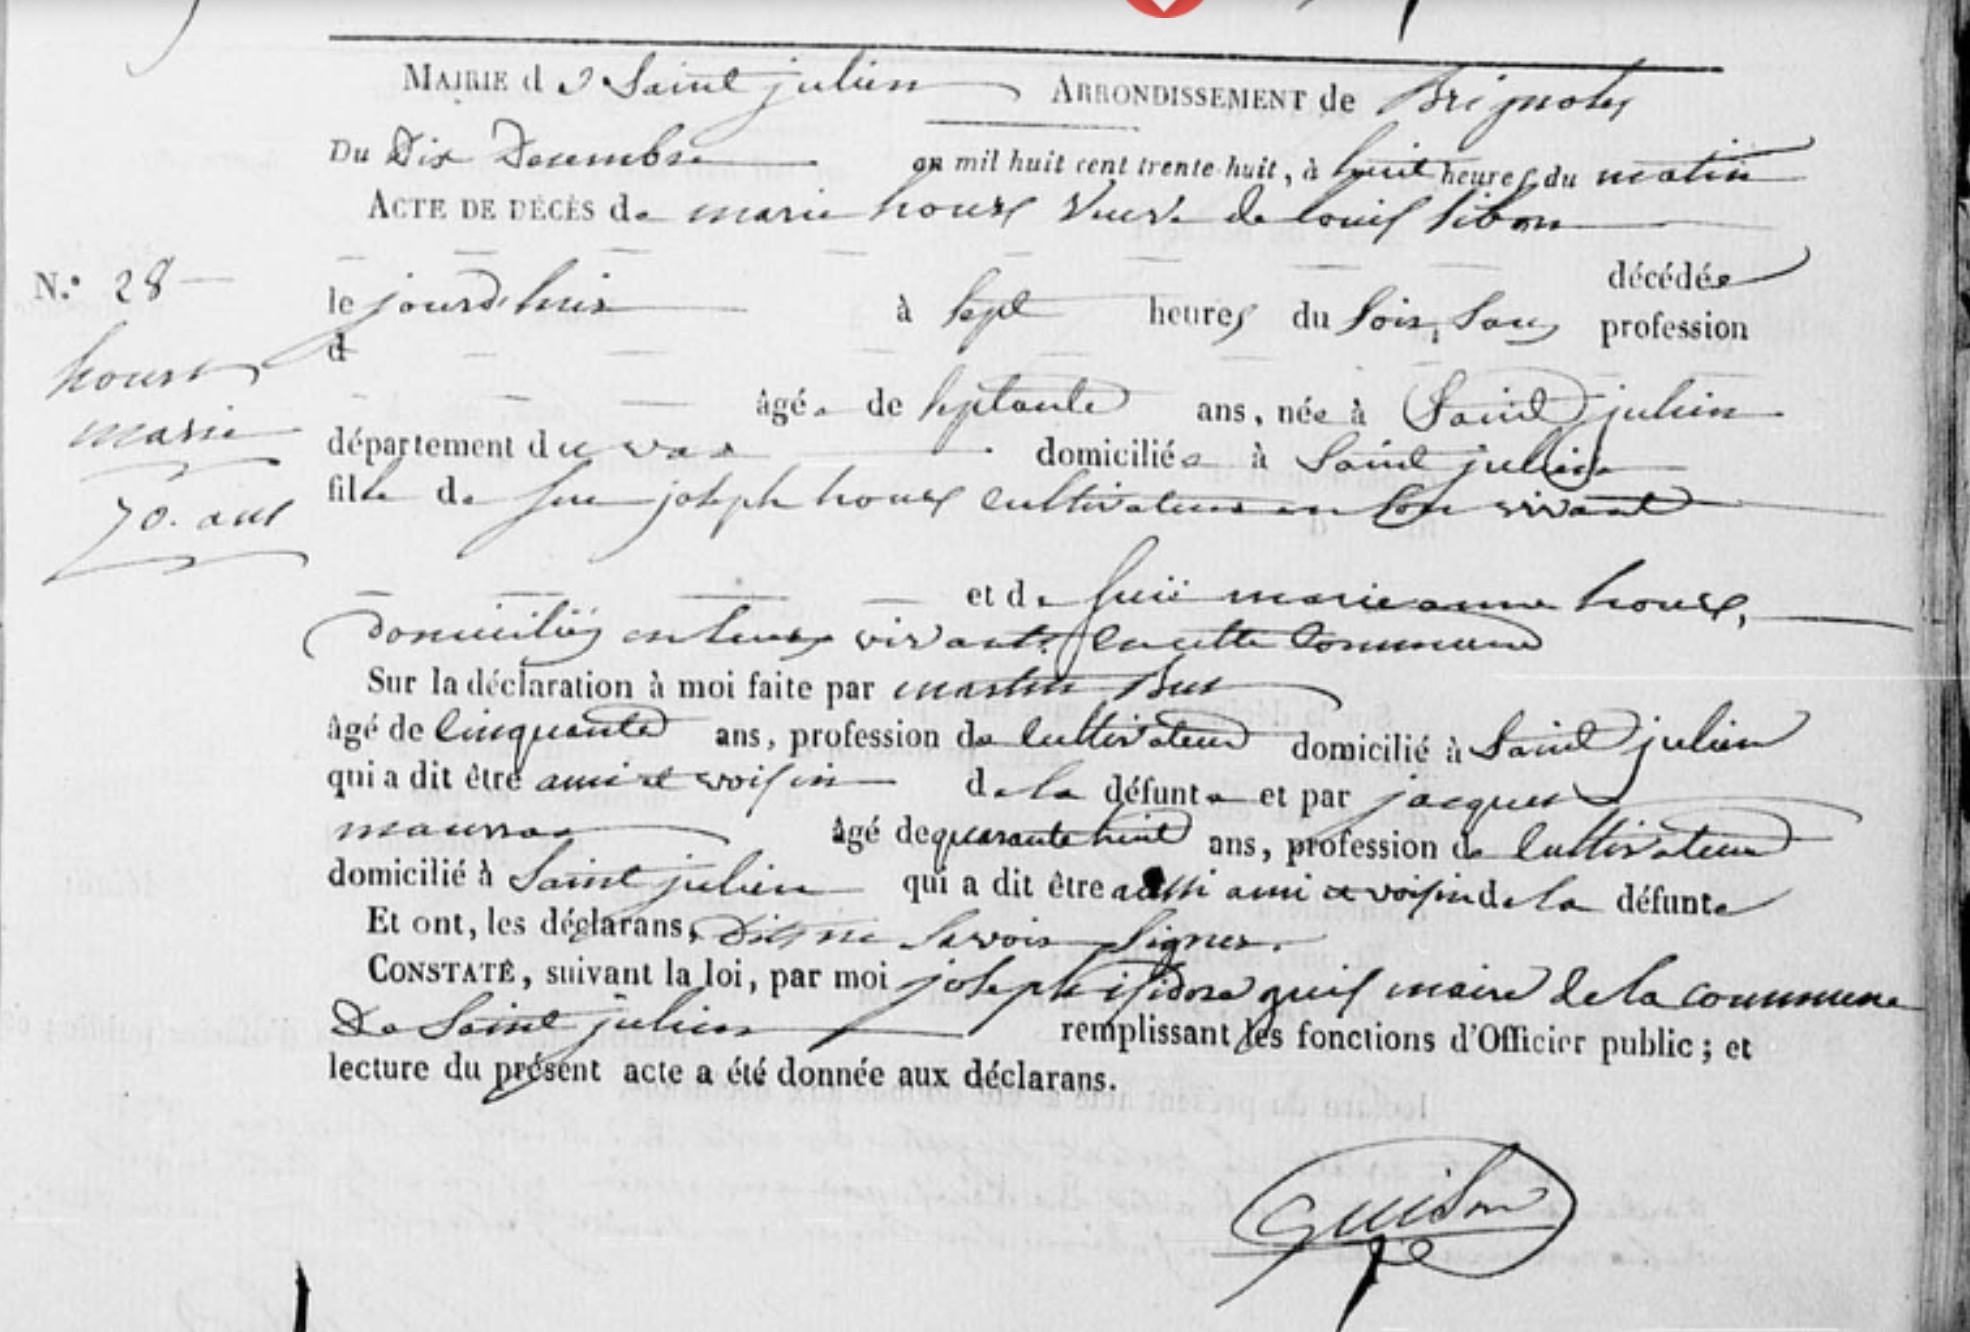 Mairie de Saint julien Arrondissement de Brignoles
Du Dix Decembre an mil huit cent trente-huit, à huit heures du matin
Acte de décès de marie houx veuve de louis Sibon
décédée
N.° 28
le jourd'hui à sept heures du soir, sans profession
d
houx
marie
70. ans
âgée de septante ans, née à Saint julien
département du var domiciliée à Saint julien
fille de feu joseph houx cultivateur en son vivant
et de feüe marie anne houx,
domiciliés en leurs vivants en cette Commune
Sur la déclaration à moi faite par martin
âgé de Cinquante ans, profession de Cultivateur domicilié à Saint julien
qui a dit être ami et voisin de la défunte et par jacques
maurras âgé de quarante huit ans, profession de Cultivateur
domicilié à Saint julien qui a dit être aussi ami et voisin de la défunte
Et ont, les déclarans, dit ne savoir signer.
Constaté, suivant la loi, par moi joseph isidore maire de la commune
De Saint julien remplissant les fonctions d'Officier public ; et
lecture du présent acte a été donnée aux déclarans.